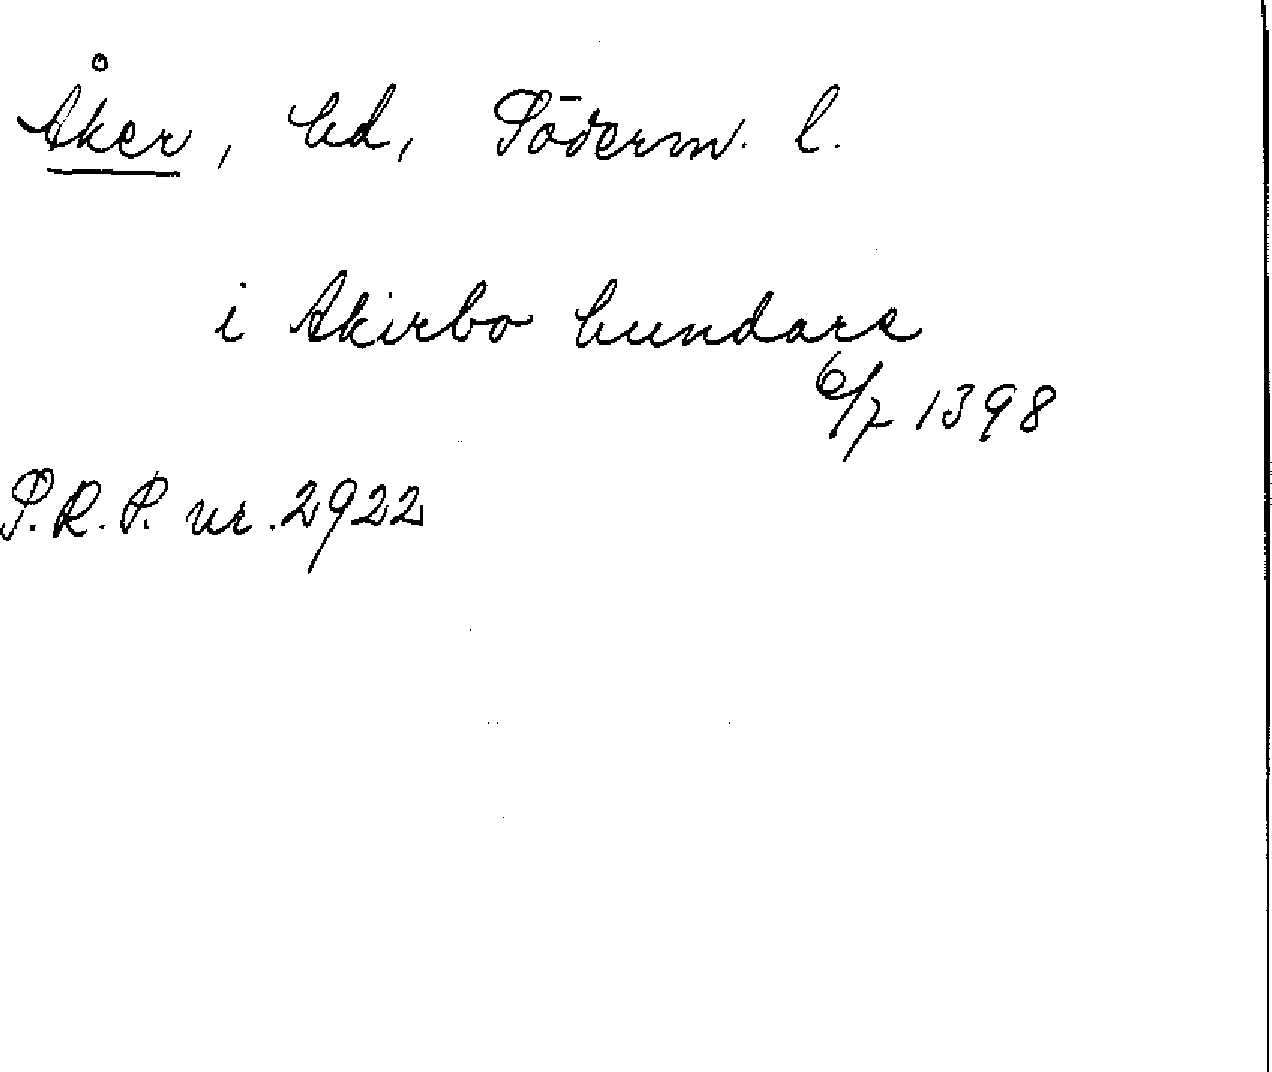 Åker, hd, Söderm. l.
i Akirbo hundare
6/7 1398
S.R.P. nr. 2922